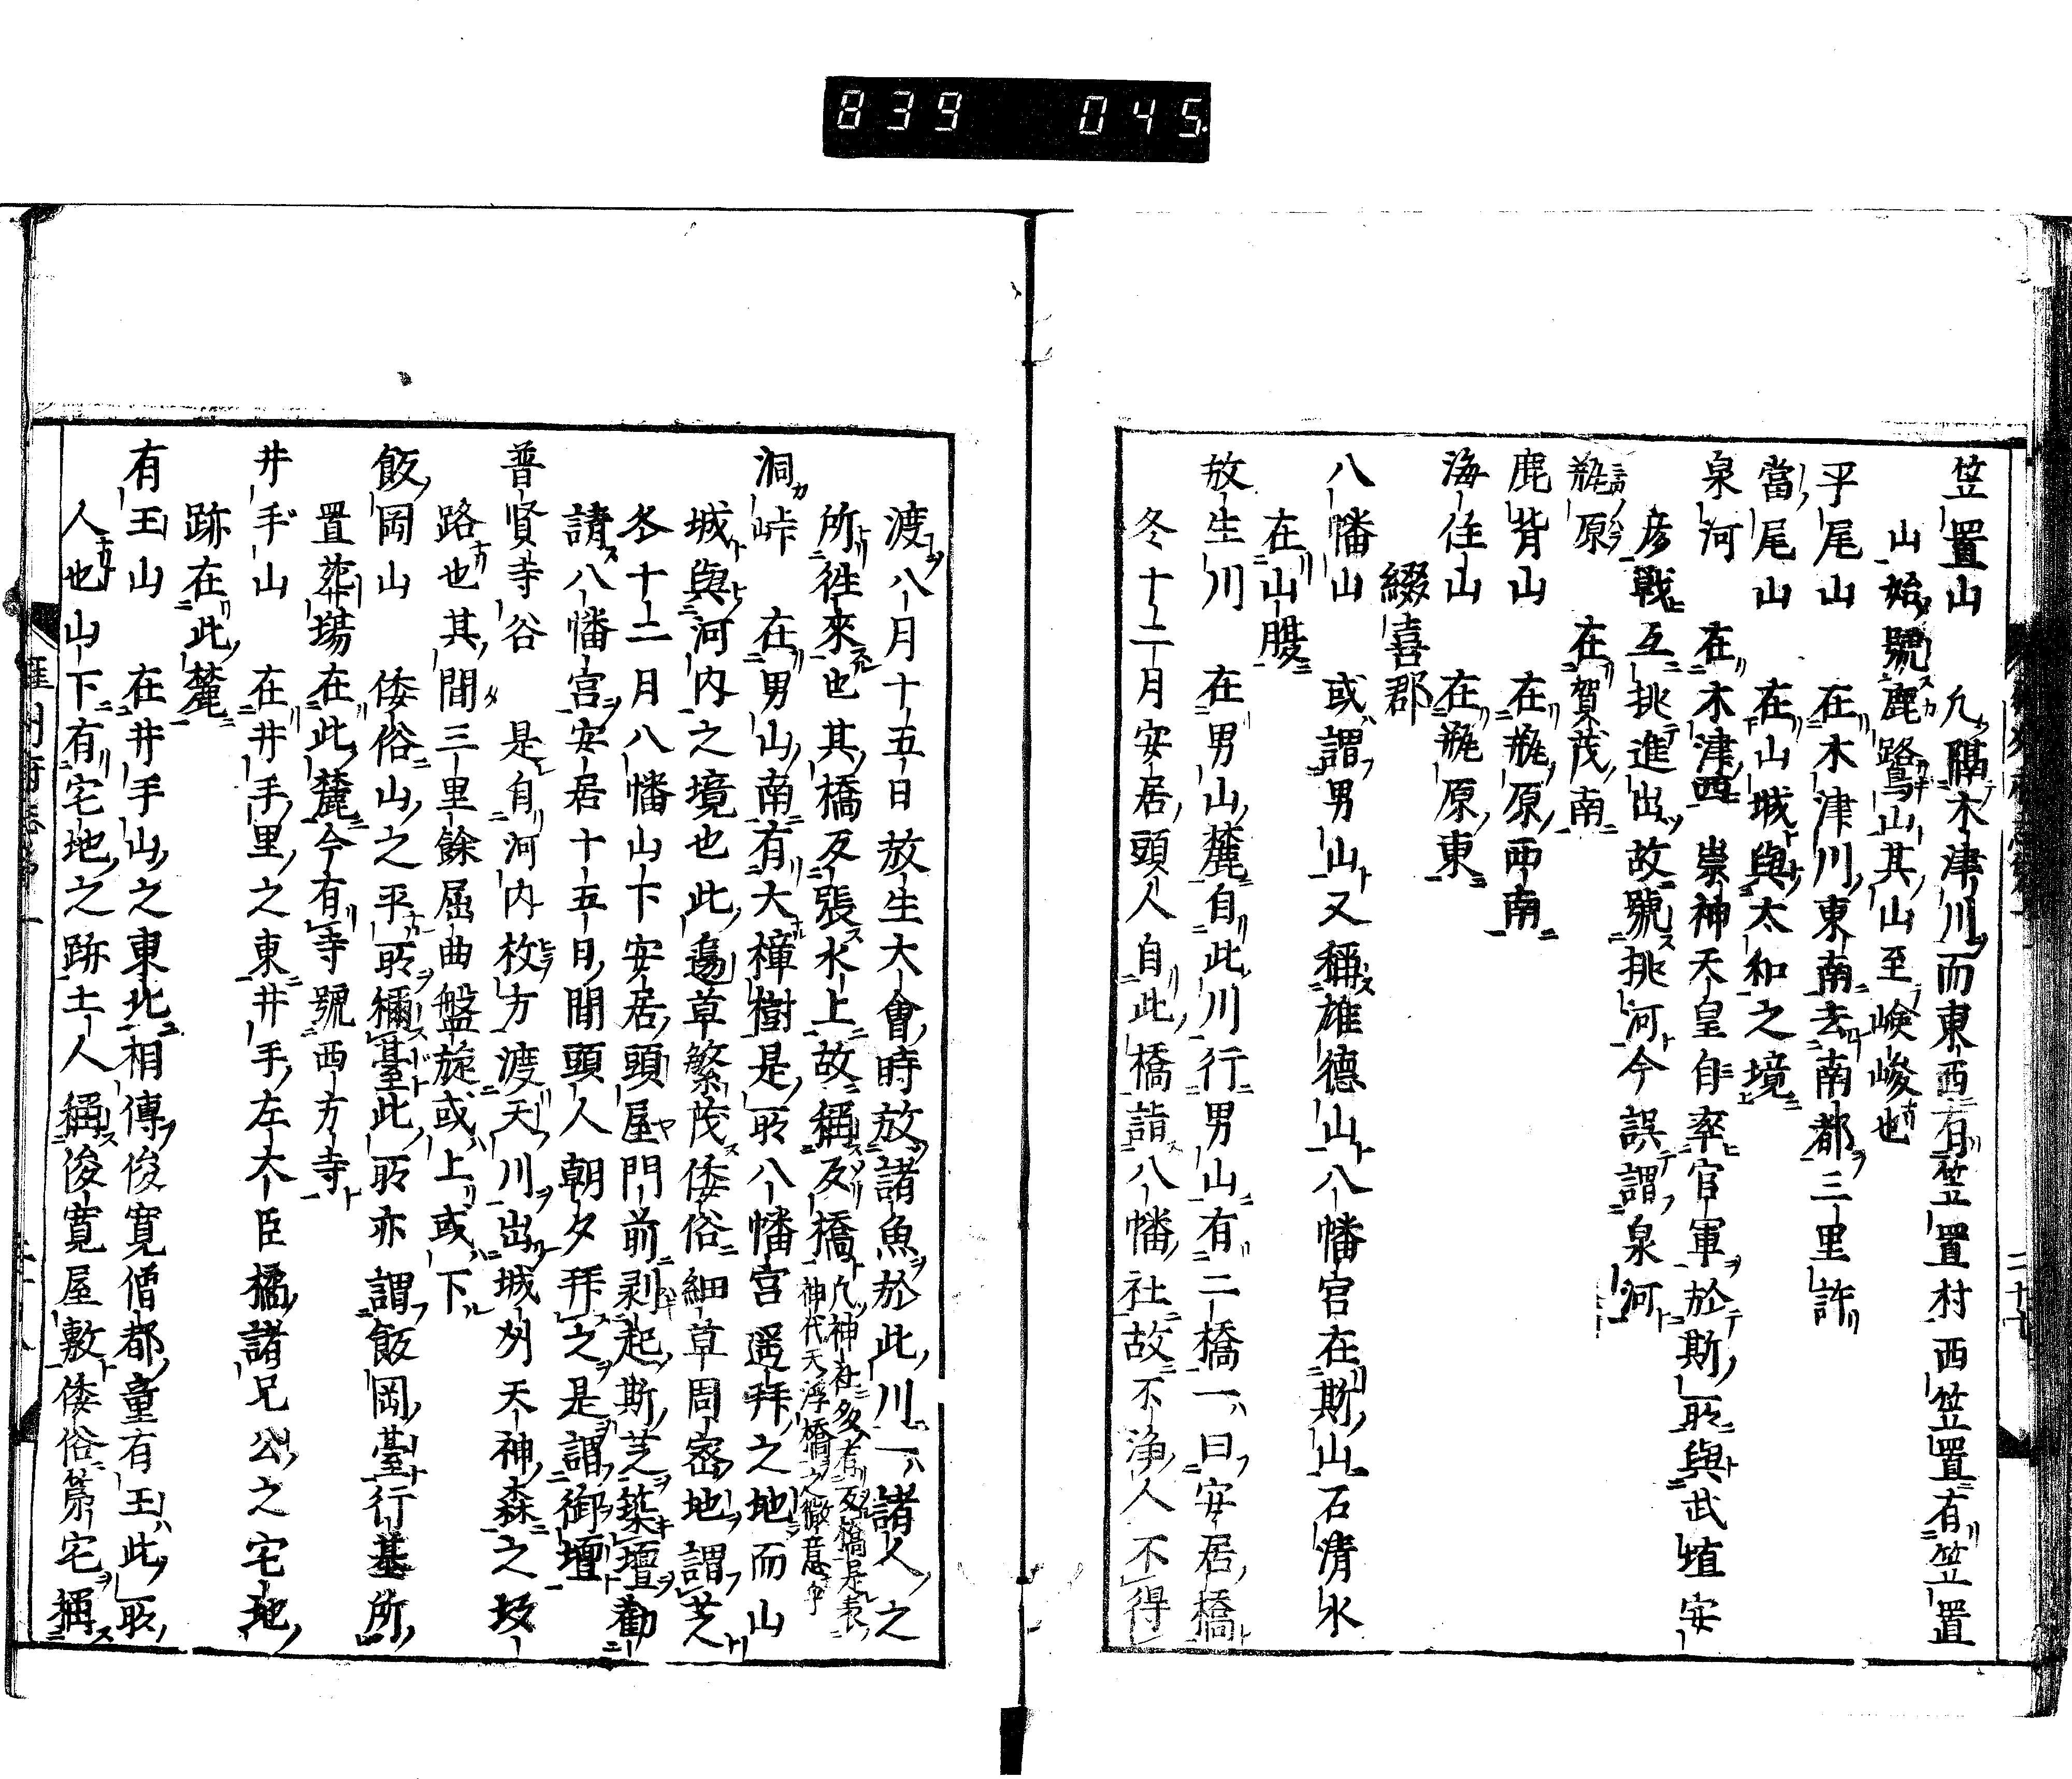 839 045
笠置山 凡隔木津川而東西有笠置村西笠置有笠置
山始號鹿鷺山其山至嶮峻也
平尾山 在木津川東南去南都三里許
當尾山 在山城與太和之境
泉河 在木津西 崇神天皇自率官軍於斯所與武埴安
彦戰互挑進出故號挑河今誤謂泉河
瓶原 在賀茂南
鹿背山 在瓶原西南
海住山 在瓶原東
綴喜郡
八幡山 或謂男山又稱雄德山八幡宮在斯山石清水
在山腰
放生川 在男山麓自此川行男山有二橋一曰安居橋
冬十二月安居頭人自此橋詣八幡社故不淨人不得
渡八月十五日放生大會時放諸魚於此川一諸人之
所徃來也其橋反張水上故稱反橋凡神社多有反橋是表神代天浮橋之徽意乎
洞峠 在男山南有大樟樹是所八幡宮遥拜之地而山
城與河内之境也此邊草繁茂倭俗細草周密地謂芝
冬十二月八幡山下安居頭屋門前剥起斯芝築壇勸
請八幡宮安居十五日間頭人朝夕拜之是謂御壇
普賢寺谷 是自河内枚方渡天川出城州天神森之坂
路也其間三里餘屈曲盤旋或上或下
飯岡山 倭俗山之平所稱臺此所亦謂飯岡臺行基所
置葬場在此麓今有寺號西方寺
井手山 在井手里之東井手左大臣橘諸兄公之宅地
跡在此麓
有王山 在井手山之東北相傳俊寛僧都童有王此所
人也山下有宅地之跡土人稱俊寛屋敷倭俗第宅稱